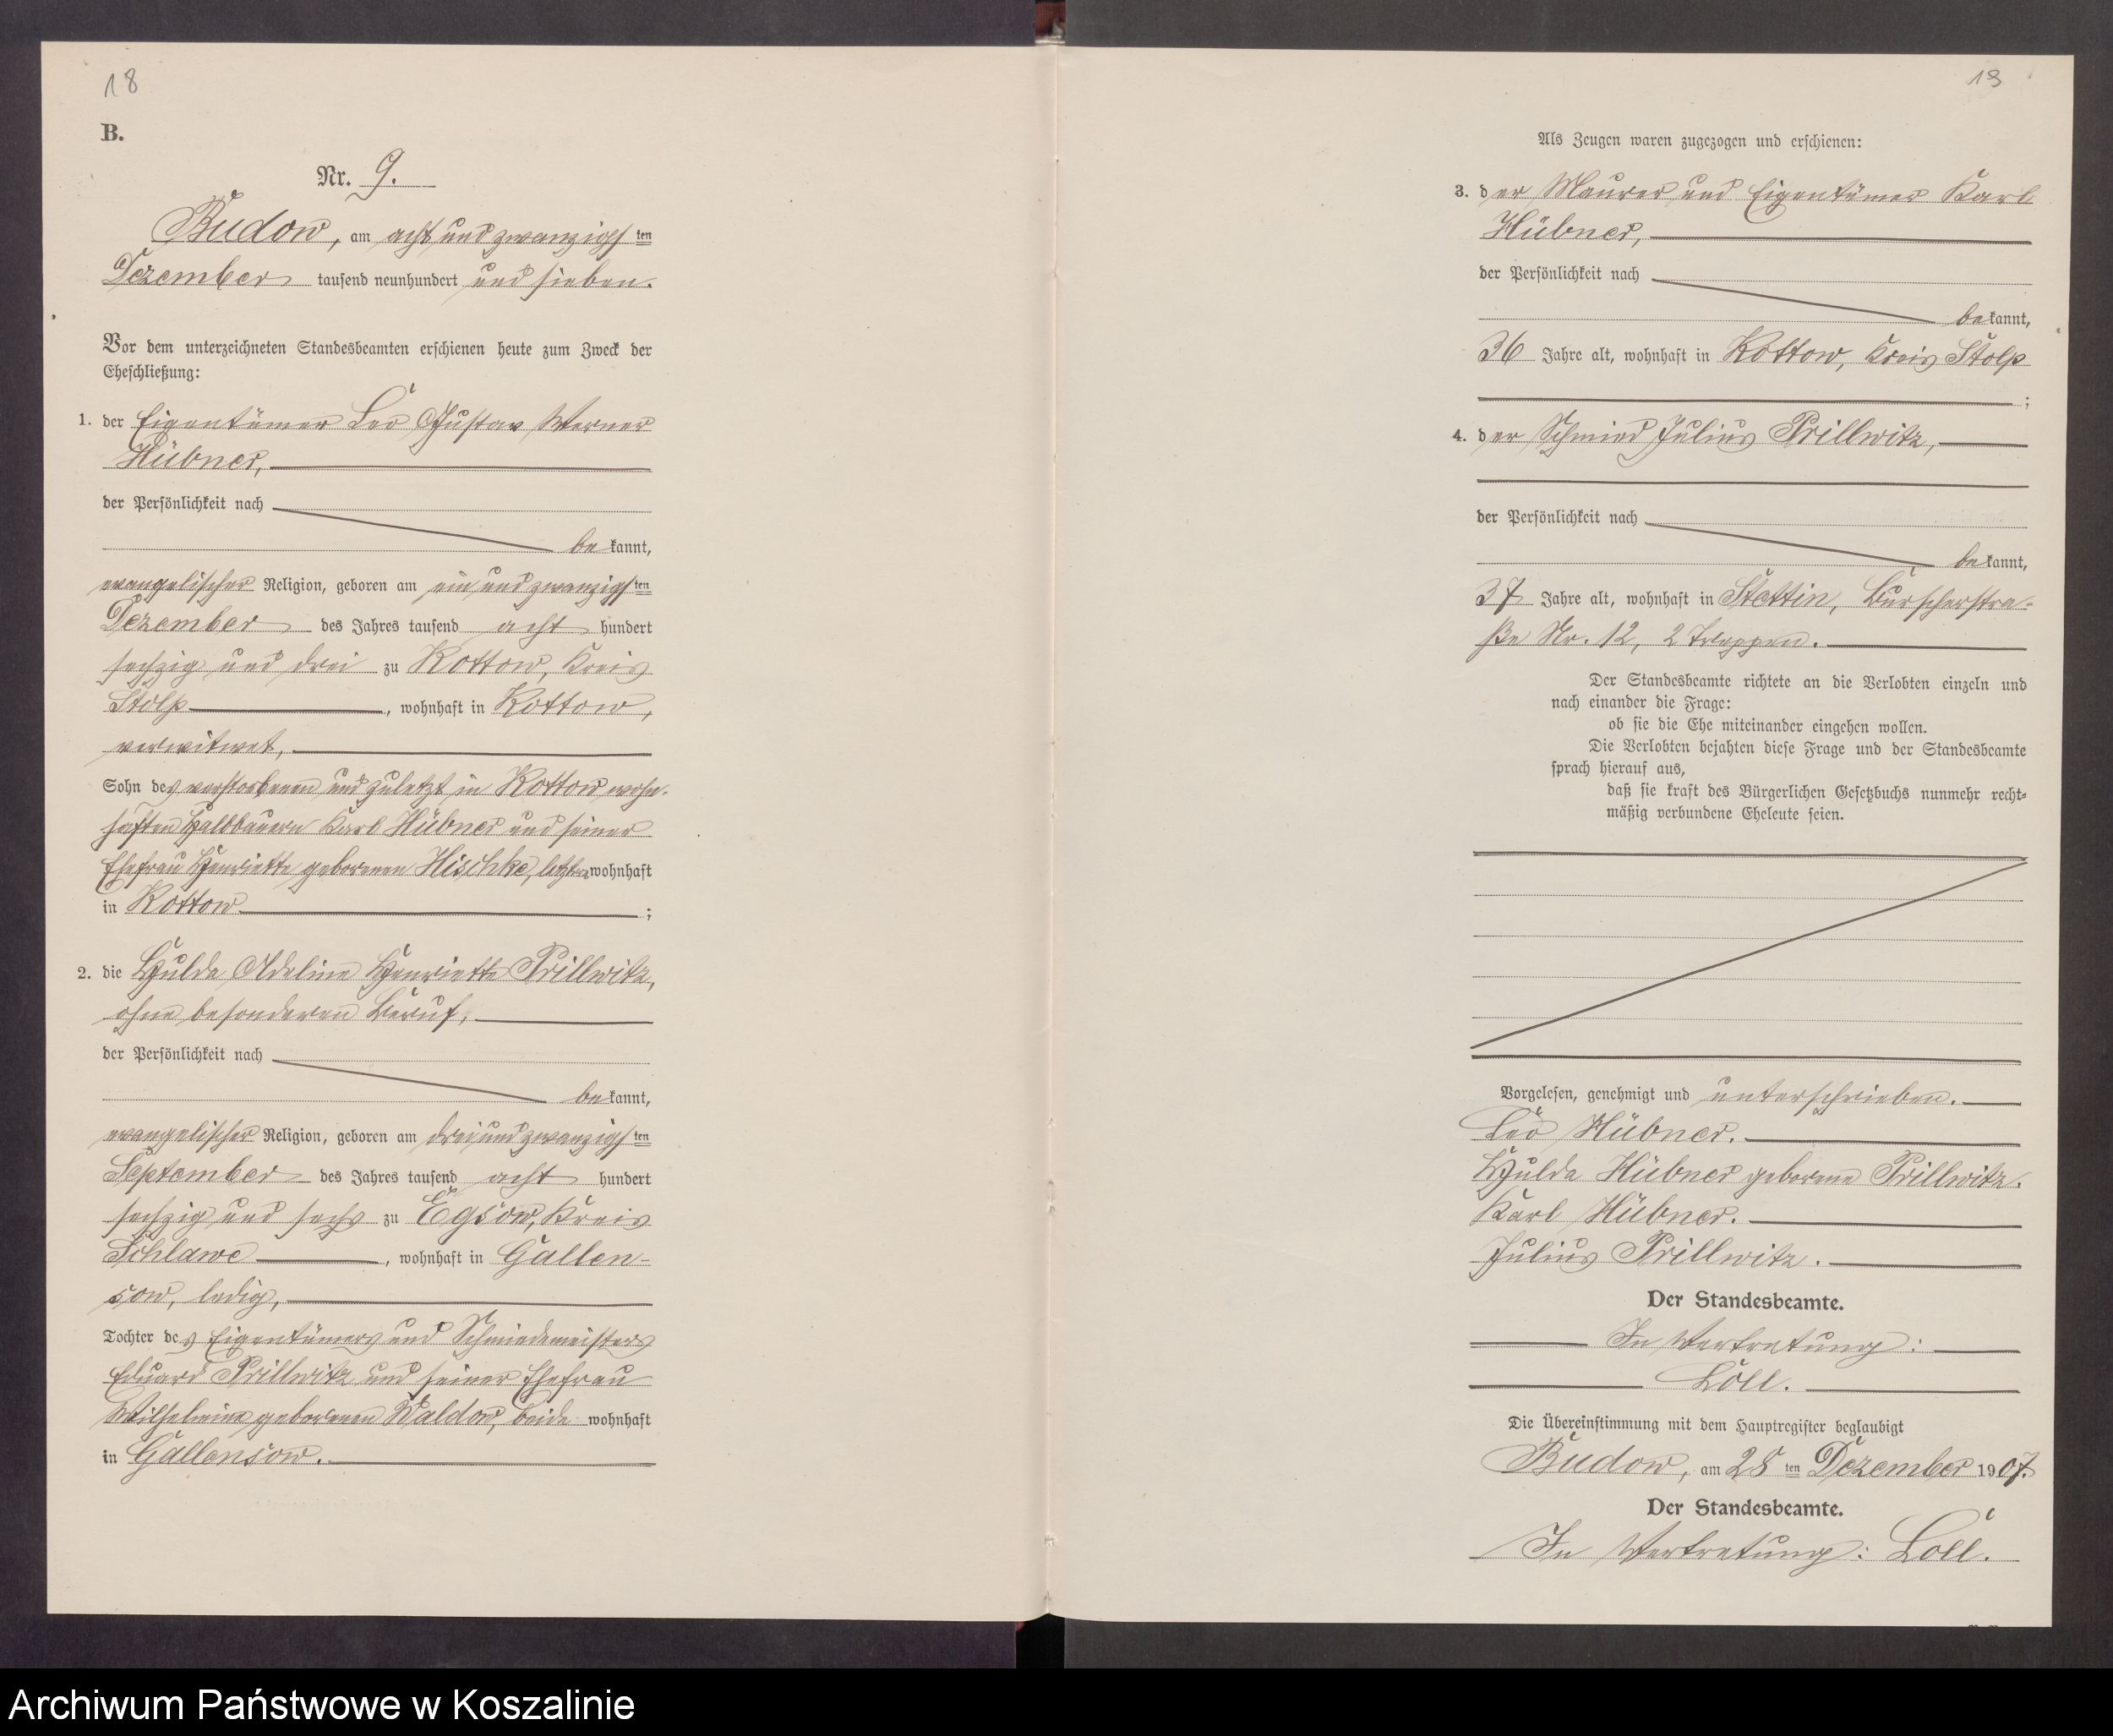 18
B.
Nr. 9.
Budow, am acht und zwanzigsten
Dezember tausend neunhundert und sieben.
Vor dem unterzeichneten Standesbeamten erschienen heute zum Zweck der
Eheschließung:
1. der Eigentümer Leo Gustav Werner
Hübner,
der Persönlichkeit nach
bekannt,
evangelischer Religion, geboren am ein und zwanzigsten
Dezember des Jahres tausend acht hundert
sechzig und drei zu Kottow, Kreis
Stolp, wohnhaft in Kottow,
verwitwet,
Sohn des verstorbenen und zuletzt in Kottow wohn-
haften Halbbauern Karl Hübner und seiner
Ehefrau Henriette geborenen Hischke, letztere wohnhaft
in Kottow;
2. die Hulda Adeline Henriette Prillwitz,
ohne besonderen Beruf,
der Persönlichkeit nach
bekannt,
evangelischer Religion, geboren am drei und zwanzigsten
September des Jahres tausend acht hundert
sechzig und sechs zu Egsow, Kreis
Schlawe, wohnhaft in Gallen-
sow, ledig,
Tochter des Eigentümers und Schmiedemeisters
Eduard Prillwitz und seiner Ehefrau
Wilhelmine geborenen Waldow, beide wohnhaft
in Gallensow.
19
Als Zeugen waren zugezogen und erschienen:
3. der Maurer und Eigentümer Karl
Hübner,
der Persönlichkeit nach
bekannt,
36 Jahre alt, wohnhaft in Kottow, Kreis Stolp
;
4. der Schmied Julius Prillwitz,
der Persönlichkeit nach
bekannt,
37 Jahre alt, wohnhaft in Stettin, Burscherstra-
ße Nr. 12, 2 Treppen.
Der Standesbeamte richtete an die Verlobten einzeln und
nach einander die Frage:
ob sie die Ehe miteinander eingehen wollen.
Die Verlobten bejahten diese Frage und der Standesbeamte
sprach hierauf aus,
daß sie kraft des Bürgerlichen Gesetzbuchs nunmehr recht-
mäßig verbundene Eheleute seien.
Vorgelesen, genehmigt und unterschrieben.
Leo Hübner.
Hulda Hübner geborene Prillwitz.
Karl Hübner.
Julius Prillwitz.
Der Standesbeamte.
In Vertretung:
Löll.
Die Übereinstimmung mit dem Hauptregister beglaubigt
Budow, am 28ten Dezember 1907.
Der Standesbeamte.
In Vertretung: Löll.
Archiwum Państwowe w Koszalinie